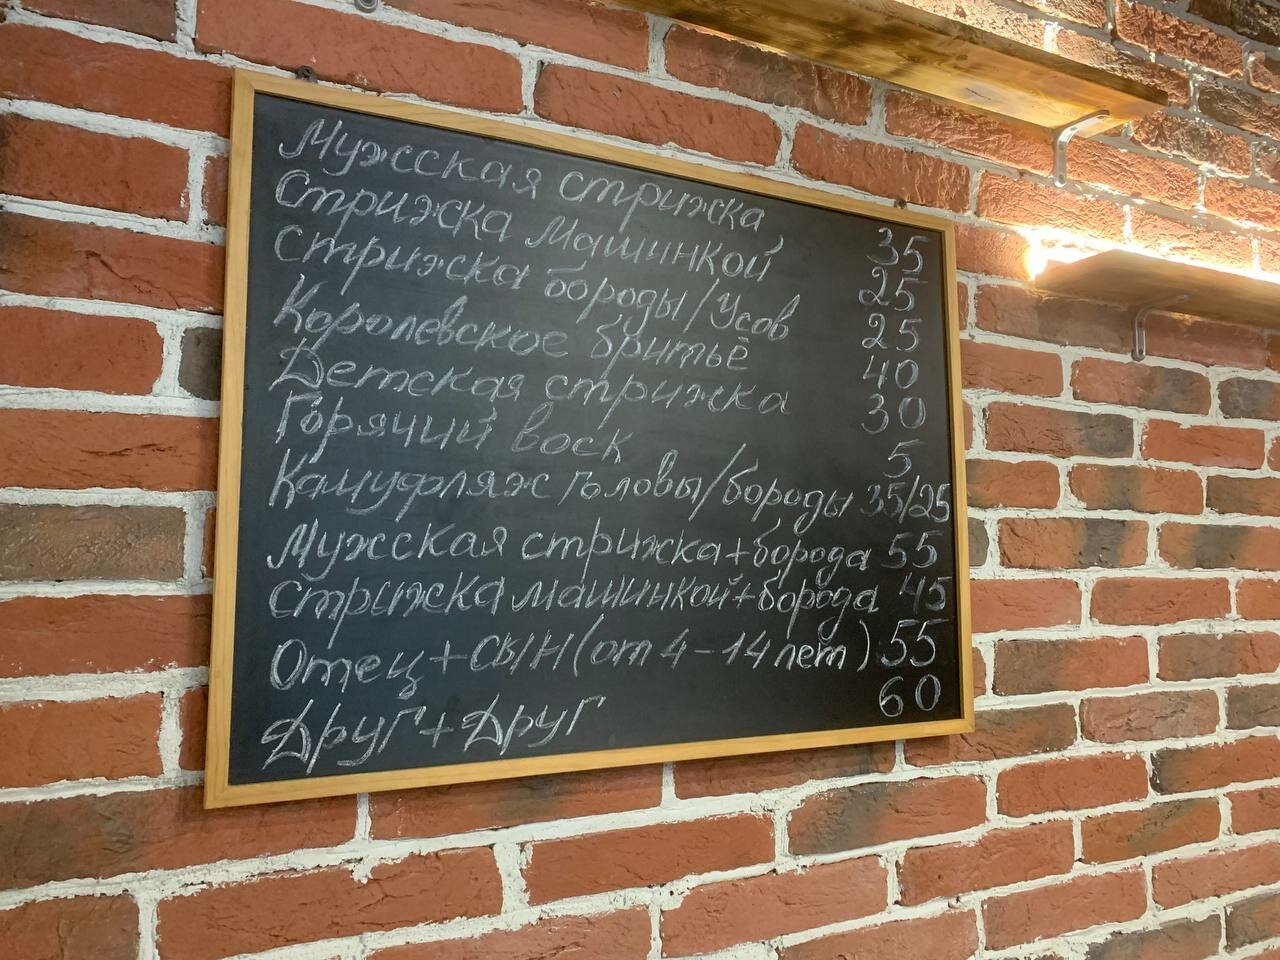 Мужская стрижка 35
Стрижка машинкой 25
Стрижка бороды/Усов 25
Королевское бритьё 40
Детская стрижка 30
Горячий воск 5
Камуфляж головы/бороды 35/25
Мужская стрижка+борода 55
Стрижка машинкой+борода 45
Отец+сын(от 4-14 лет) 55
Друг+Друг 60